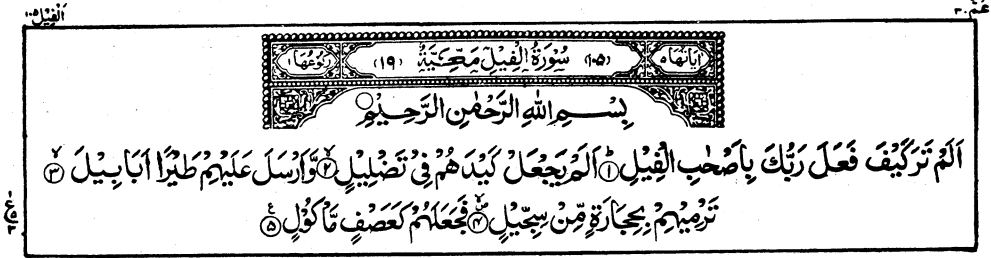 عم ٣٠
الفيل ١٠٥
اٰيَاتُهَا ٥ (١٠٥) سُوْرَةُ الْفِيْلِ مَكِّيَّةٌ (١٩) رُكُوْعُهَا ١
بِسْمِ اللّٰهِ الرَّحْمٰنِ الرَّحِيْمِ
اَلَمْ تَرَ كَيْفَ فَعَلَ رَبُّكَ بِاَصْحٰبِ الْفِيْلِ ۝١ اَلَمْ يَجْعَلْ كَيْدَهُمْ فِيْ تَضْلِيْلٍ ۝٢ وَّاَرْسَلَ عَلَيْهِمْ طَيْرًا اَبَابِيْلَ ۝٣
تَرْمِيْهِمْ بِحِجَارَةٍ مِّنْ سِجِّيْلٍ ۝٤ فَجَعَلَهُمْ كَعَصْفٍ مَّاْكُوْلٍ ۝٥